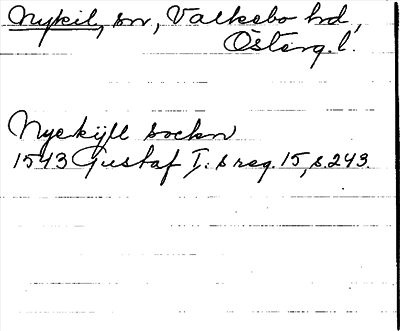 Nykil, sn, Valkebo hd,
Österg. l.
Nyekijll sockn
1543 Gustaf I:s reg. 15, s. 243.